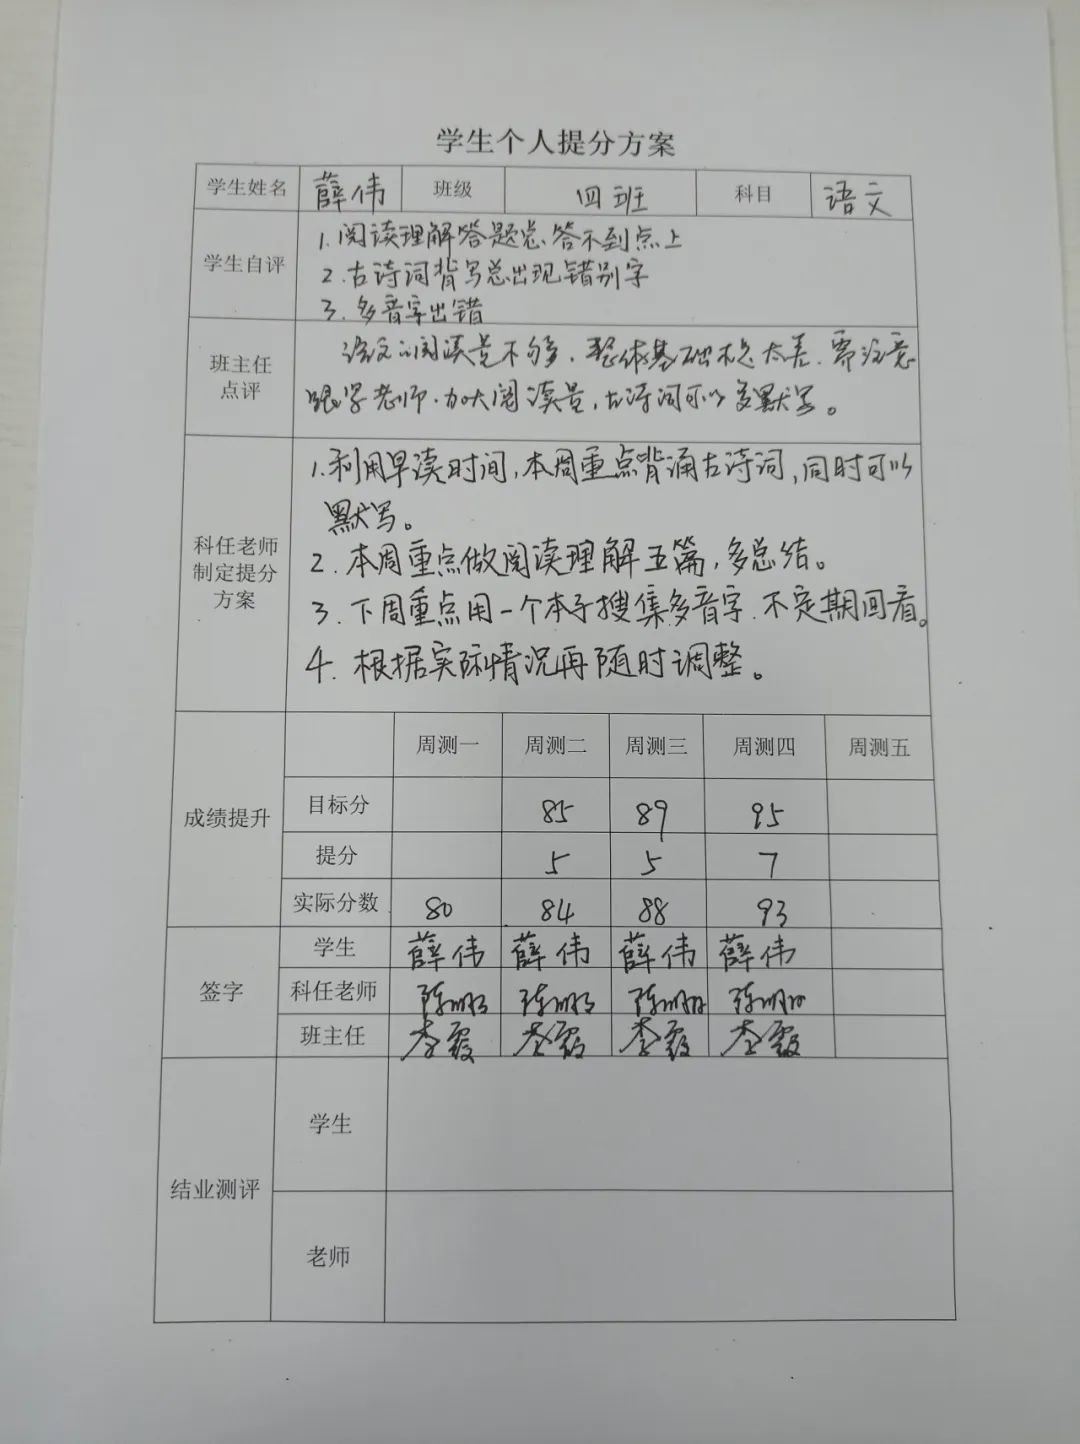 学生个人提分方案
学生姓名 薛伟 班级 四班 科目 语文
学生自评
1.阅读理解答题总答不到点上
2.古诗词背写总出现错别字
3.多音字出错
班主任
点评
语文的阅读量不够.整体基础不是太差.需注意
跟紧老师.加大阅读量,古诗词可以多默写。
科任老师
制定提分
方案
1.利用早读时间,本周重点背诵古诗词,同时可以
默写。
2.本周重点做阅读理解五篇,多总结。
3.下周重点用一个本子搜集多音字.不定期间看。
4.根据实际情况再随时调整。
成绩提升
周测一 周测二 周测三 周测四 周测五
目标分 85 89 95
提分 5 5 7
实际分数 80 84 88 93
签字
学生 薛伟 薛伟 薛伟 薛伟
科任老师
班主任 李霞 李霞 李霞 李霞
结业测评
学生
老师